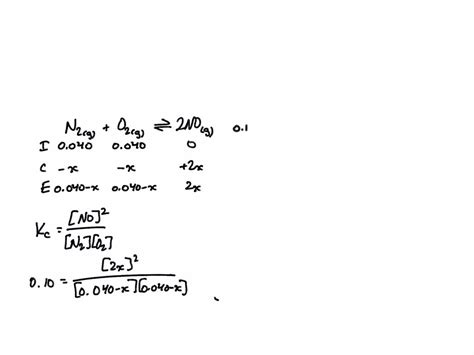 N₂(g) + O₂(g) ⇌ 2NO(g) 0.1
I 0.040 0.040 0
C -x -x +2x
E 0.040-x 0.040-x 2x
Kc = [NO]² / [N₂][O₂]
0.10 = [2x]² / [0.040-x][0.040-x]